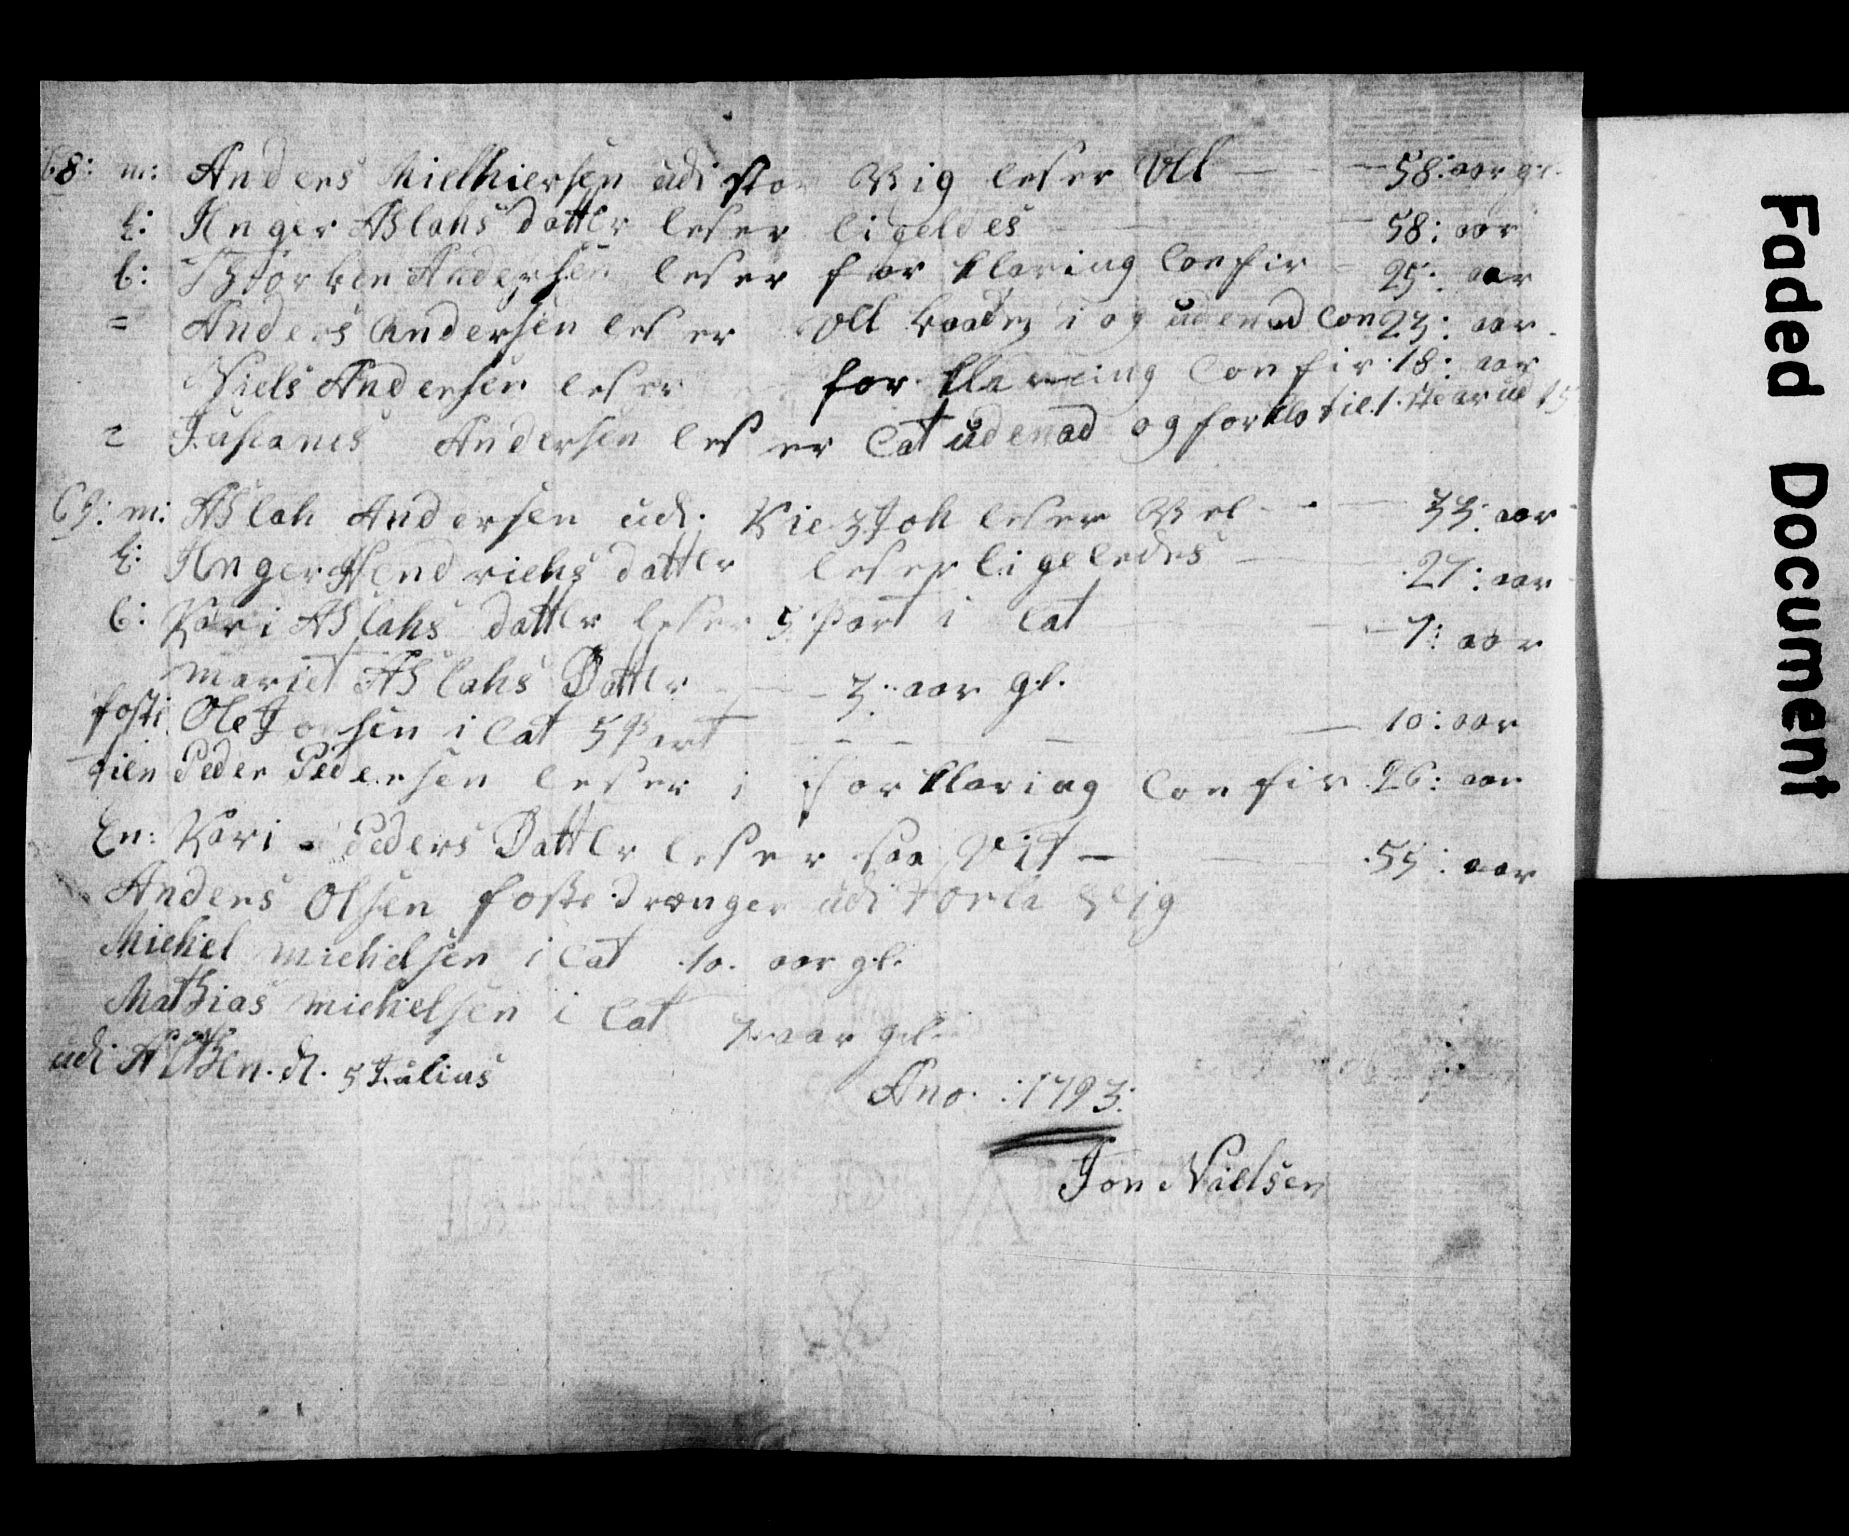 68: m: Anders Mielkiersen udi stor Vig leser Vll — 58: aar gl.
k: Inger Aslahs dattlr leser ligeldes — 58: aar
b: Thorben Andersen leser for klaring Confir 25: aar
= Anders Andersen leser Vll baade i og udenad Con 23: aar
Niels Andersen leser for klaring Confir 18: aar
= Andersen leser Cat udenad og forkla til 1 15
69: m: Aslah Andersen udi leser Vel — 33: aar
k: Inger Hendrichs dattlr leser ligeledes — 27: aar
b: Kari Aslahs dattlr leser 5 Part i Cat — 7: aar
Marit Aslahs Dattlr — 3: aar gl.
foste: Ole Jonsen i Cat 5 Part — 10: aar
tien Peder Pedersen leser i forklaring Confir 26: aar
En: Kari Peders Dattlr leser saa vit — 55: aar
Anders Olsen foste drænger udi Vig
Michel Michelsen i Cat 10. aar gl.
Mathias Michelsen i Cat 7. aar gl.
udi Alten. d. 5 Julius
Ano: 1793:
Jon Nielsen
Faded Document